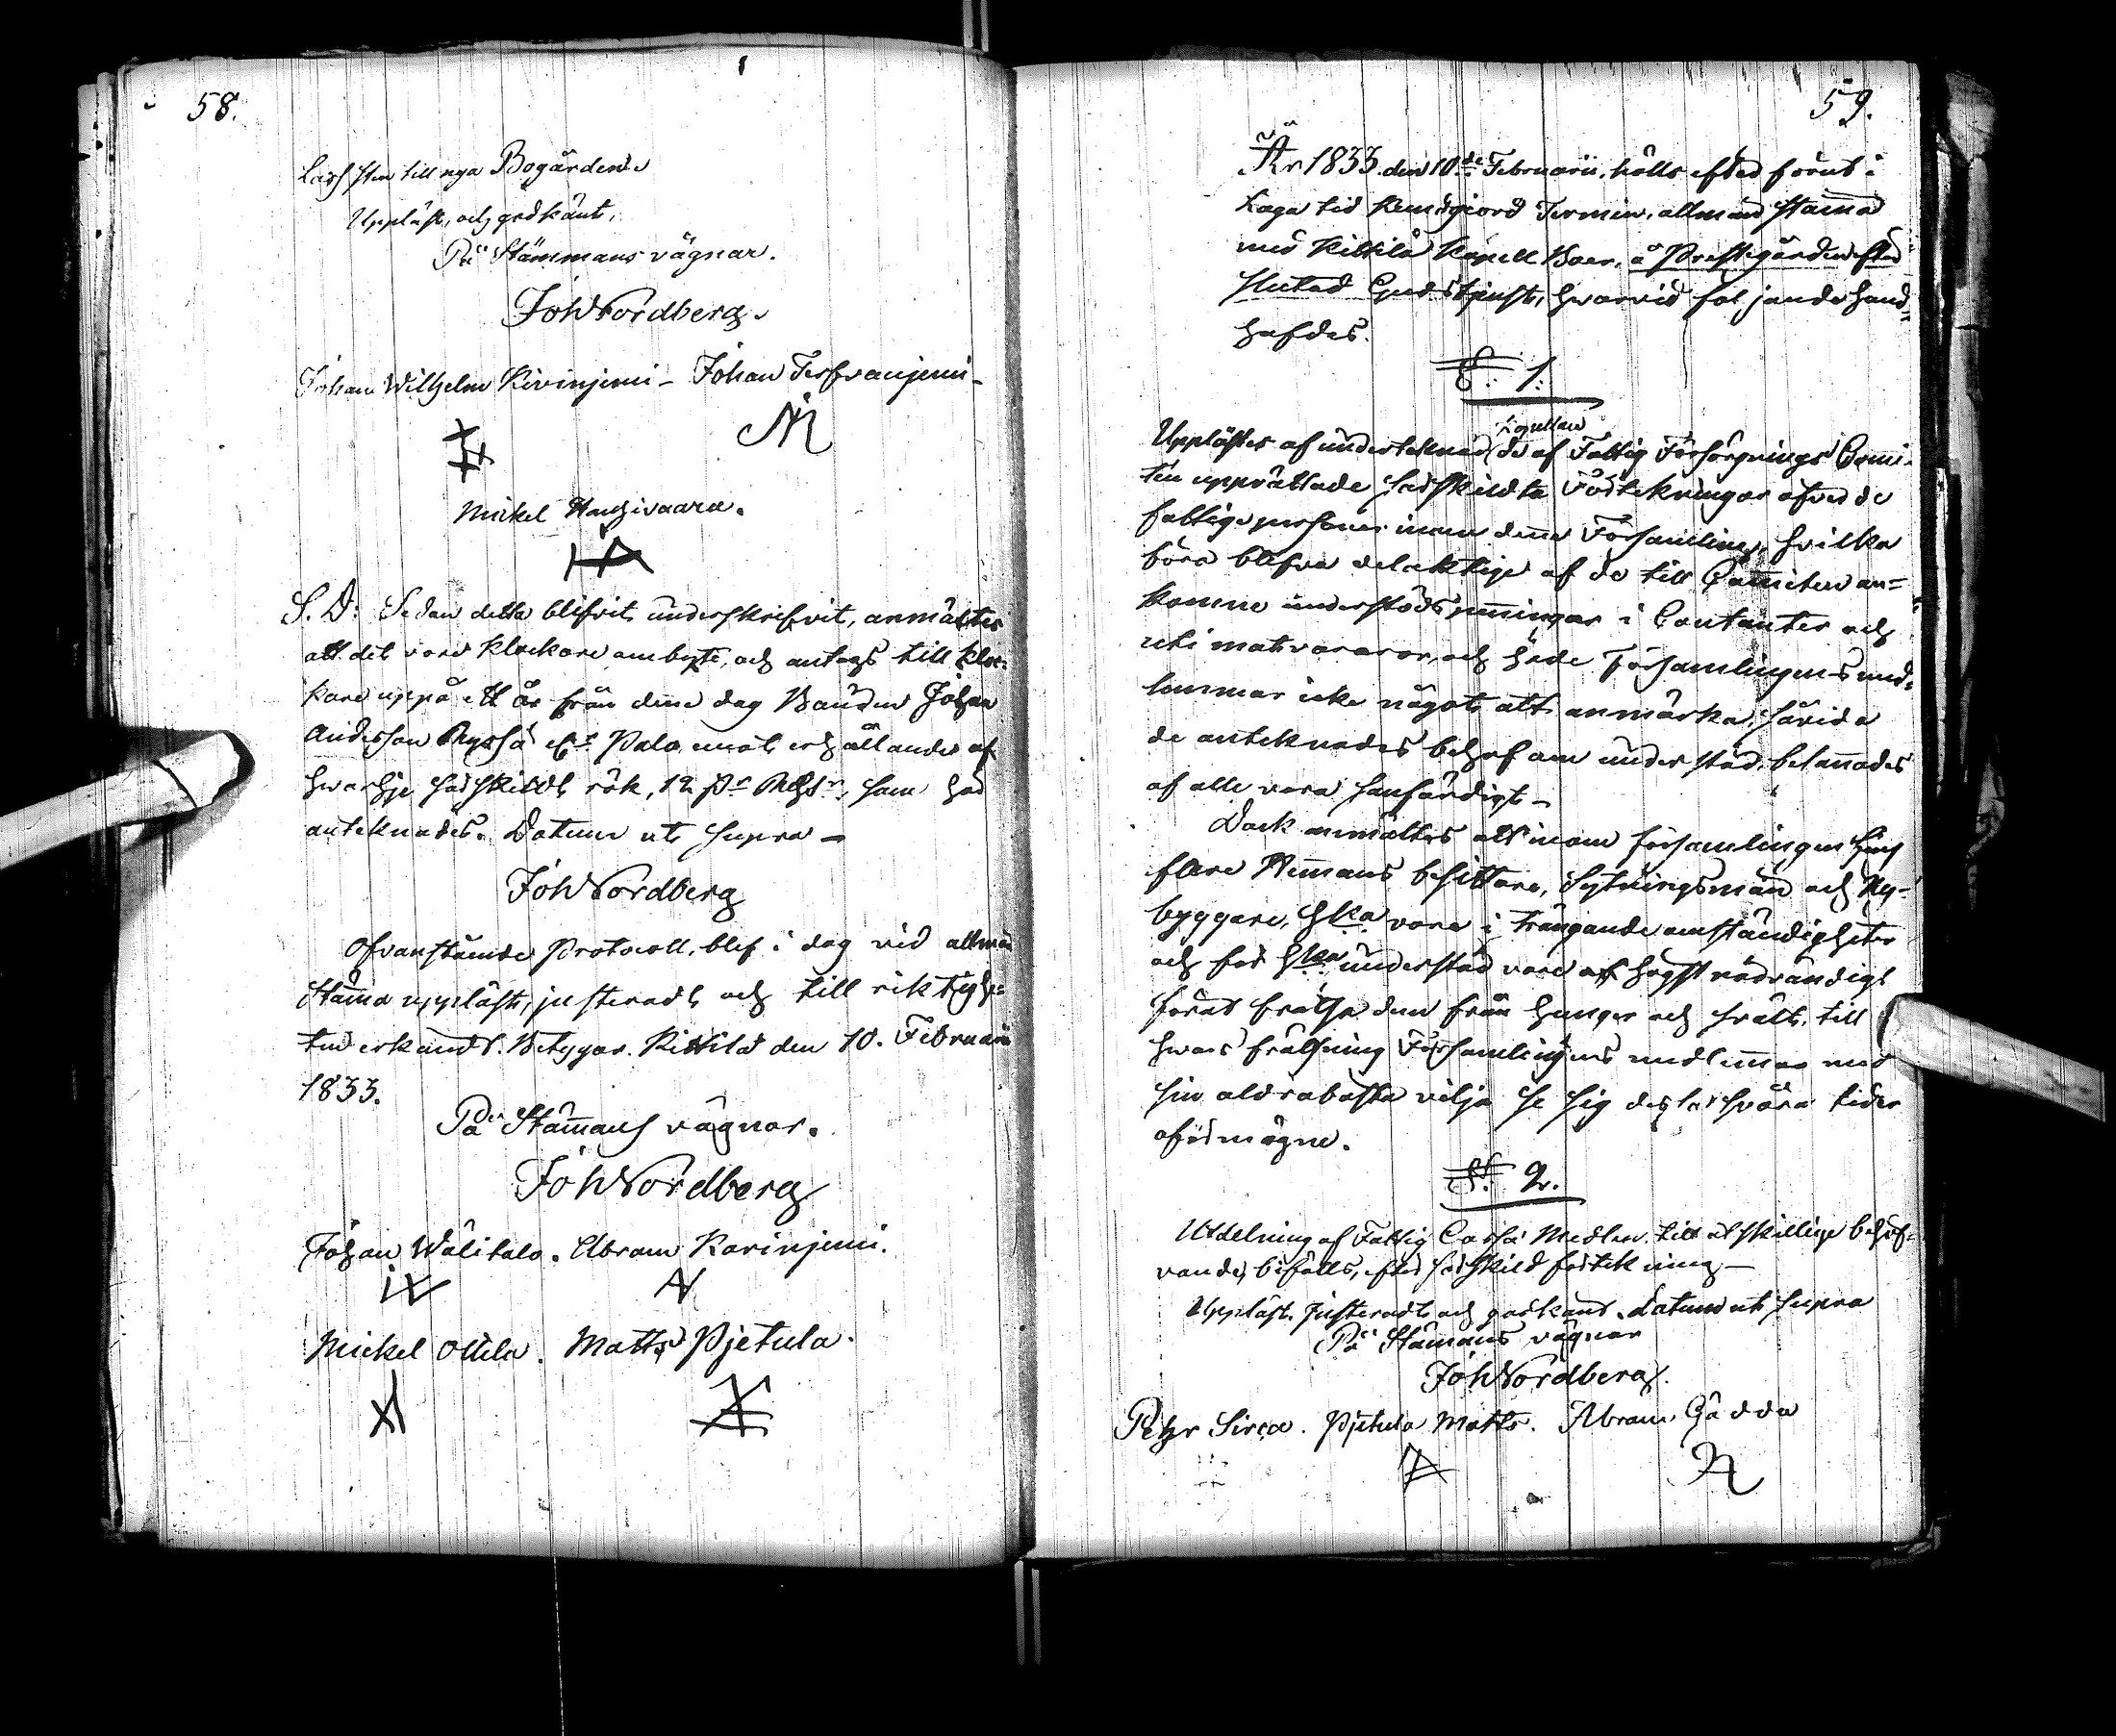 58.
till nya Bogården
Uppläst, och godkänt,
På Stämmans vägnar.
Joh Nordberg.
Johan Wilhelm Kivinjemi - Johan Terfvanjemi -
Mickel Hanhivaara.
S. D: Sedan detta blifvit underskrifvit, anmältes
att det vore klockare ombyte, och antogs till kloc-
kare uppå ett år från denna dag Bonden Johan
Andersson Ryssä Palo emot erhållande af
hvarje särskildt rök, 12 som här
anteknades. Datum ut supra -
Joh Nordberg
Ofvanstående Protocoll, blef i dag vid allmän
Stämma uppläst, justeradt och till riktighe-
ten erkändt. Betygar. Kittilä den 10. Februarii
1833.
På Stämmans vägnar.
Joh Nordberg
Johan Wälitalo. Abram Korinjemi.
Mickel Ollila. Matts Pjetula.
59.
År 1833. den 10de Februarii, hölls efter förut i
Laga tid kundgiord Termin, allmän Stämma
med Kittilä Kapell Boer, å Prestegården efter
slutad Gudstjenst, hvarvid följande hand-
hafdes.
§. 1.
Upplästes af undertecknad de af Fattig Försörjnings Comi-
tén upprättade särskildta Förtekningar öfver de
fattige personer inom denna Församling, hvilka
böra blifva delaktige af de till Comitén an-
komne understöds penningar i Contanter och
uti matvaror, och hade Församlingens med-
lemmar icke något att anmärka, särida
de anteknades behof om understöd, besannades
af alle vara sanfärdigt -
Dock anmältes att inom församlingen fins
flere Hemmans besittare, Sytningsmän och Ny-
byggare, hka vore i trängande omständigheter
och för hka understöd vore af högst nödvändigt
förat frälsa dem från hunger och svält, till
hvars frälsning Församlingens medlemmar med
sin aldrabästa vilja se sig dessa svåra tider
oförmögne.
§. 2.
Utdelning af Fattig Cassä Medlen till åtskillige behöf-
vande, bifölls, efter särskild förtekning -
Uppläst, Justeradt och godkänd, datum ut supra
På Stämmans vägnar
Joh Nordberg.
Pehr Sirca. Pjetula Matts. Abram Gädda